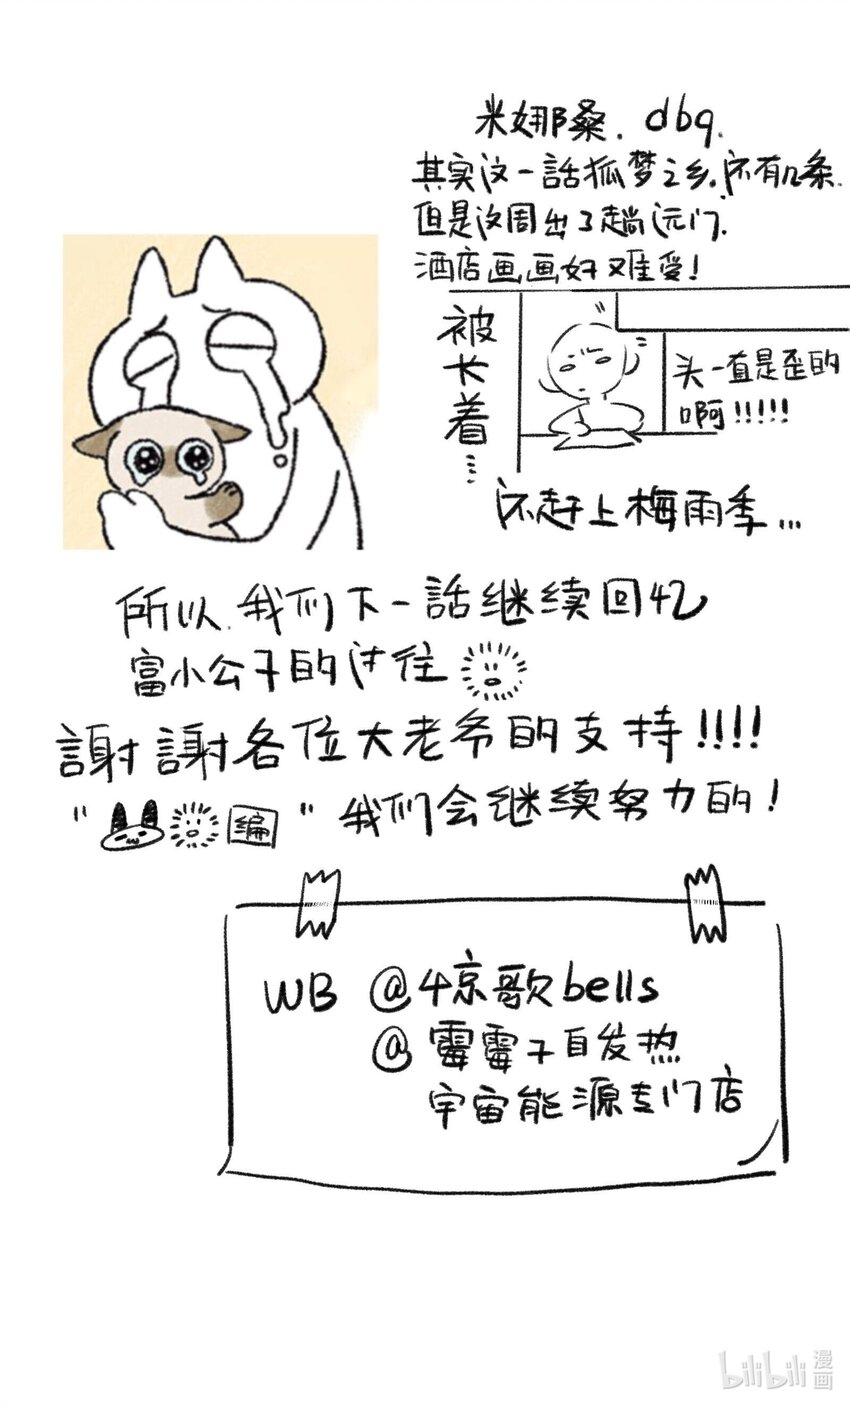 米娜那桑. dbq.
其实这一話狐梦之乡,还有几条.
但是这周出了趟远门,
酒店画画好难受!
被
长
着
头一直是歪的
啊!!!!!
还赶上梅雨季...
所以.我们下一話继续回忆
富小公子的过往
謝謝各位大老爷的支持!!!!
" 编 " 我们会继续努力的!
WB @4京歌bells
@霉霉子自发热
宇宙能源专门店
bilibili 漫画